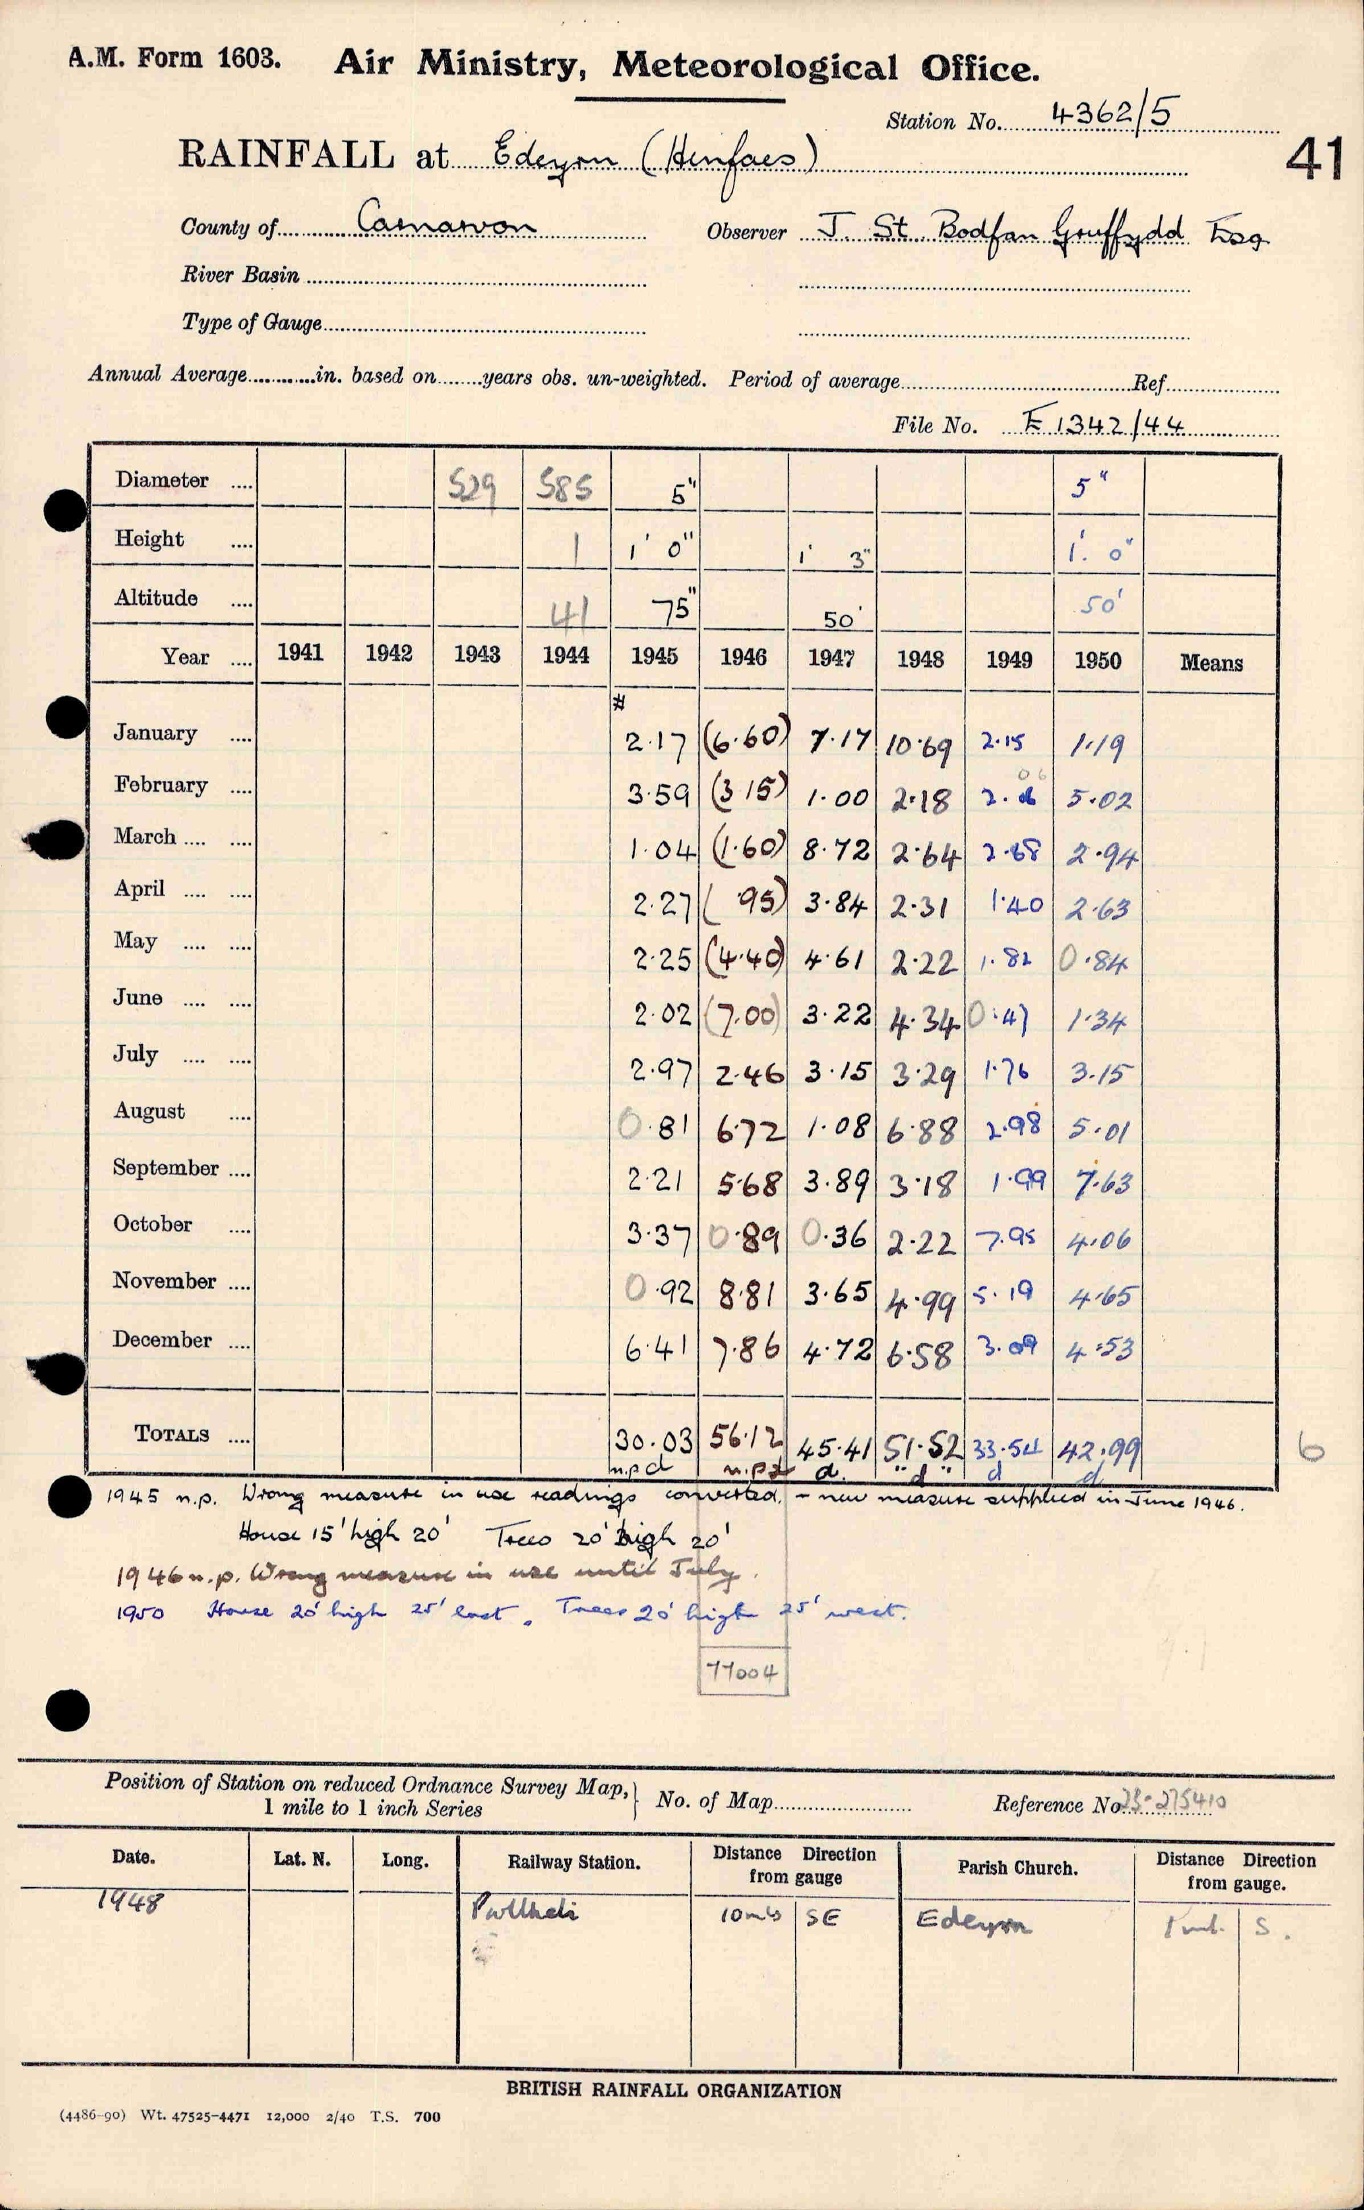 A.M. Form 1603. Air Ministry, Meteorological Office.
Station No. 4362/5
RAINFALL at Edeyrn (Henfaes) 41
County of Carnarvon Observer J. St. Bodfan Gruffydd Esq
River Basin
Type of Gauge
Annual Average in. based on years obs. un-weighted. Period of average Ref
File No. E 1342/44
Diameter .... 529 585 5" 5"
Height .... 1 1' 0" 1' 3" 1' 0"
Altitude .... 41 75" 50' 50'
Year .... 1941 1942 1943 1944 1945 1946 1947 1948 1949 1950 Means
#
January .... 2.17 (6.60) 7.17 10.69 2.15 1.19
06
February .... 3.59 (3 15) 1.00 2.18 2.06 5.02
March .... .... 1.04 (1.60) 8.72 2.64 2.68 2.94
April .... .... 2.27 ( .95) 3.84 2.31 1.40 2.63
May .... .... 2.25 (4.40) 4.61 2.22 1.82 0.84
June .... .... 2.02 (7.00) 3.22 4.34 0.47 1.34
July .... .... 2.97 2.46 3.15 3.29 1.76 3.15
August .... 0.81 6.72 1.08 6.88 2.98 5.01
September .... 2.21 5.68 3.89 3.18 1.99 7.63
October .... 3.37 0.89 0.36 2.22 7.95 4.06
November .... 0.92 8.81 3.65 4.99 5.19 4.65
December .... 6.41 7.86 4.72 6.58 3.09 4.53
TOTALS .... 30.03 56.12 45.41 51.52 33.54 42.99 6
n.p d n.p d d. " d " d d
1945 n.p. Wrong measure in use readings converted. - new measure supplied in June 1946.
House 15' high 20' Trees 20' high 20'
1946 n.p. Wrong measure in use until July.
1950 House 20' high 25' east. Trees 20' high 25' west.
77004
Position of Station on reduced Ordnance Survey Map,
1 mile to 1 inch Series
No. of Map Reference No. 23-275410
Date. Lat. N. Long. Railway Station. Distance from gauge Direction Parish Church. Distance from gauge. Direction
1948 Pwllheli 10 mls SE Edeyrn 1 ml. S.
BRITISH RAINFALL ORGANIZATION
(4486-90) Wt. 47525-4471 12,000 2/40 T.S. 700